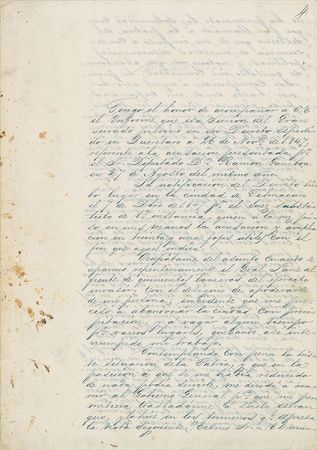 Tengo el honor de acompañar a V.E.
el Informe que esa Sección del Gran
Jurado previno en su Decreto espedi-
do en Querétaro a 20 de Novre de 1847,
referente a la acusacion presentada pr
el Sr. Diputado Dn Ramon Gamboa
en 27 de Agosto del mismo año.
La notificacion del Decreto tu-
bo lugar en la ciudad de Tehuacan
el 7 de Dbre de 1847 pr el Juez
de 1a instancia, quien a la vez pu-
so en mis manos la acusacion y amplia-
cion en treinta y una fojas utiles con el
fin que aquel indica.
Ocupabame del asunto cuando se
aparecio repentinamente el Gral. Lane al
frente de quinientos lanceros del ejercito
invasor con el designio de apoderarse
de mi persona; incidente que me pre-
cisó a abandonar la ciudad con preci-
pitacion, y a vagar algun tiempo
pr varios lugares, quedando asi inte-
rrumpido mi trabajo.
Contemplando con pena la tris-
te situacion de la Patria, y que en la
posicion a que se me habia reducido
de nada podia servirle, me decidí a
al Gobierno General pa que me per-
mitiera trasladarme a suelo estran-
gero, y lo hice en los terminos qe espresa
la Nota siguiente: "Exmo Sr.=